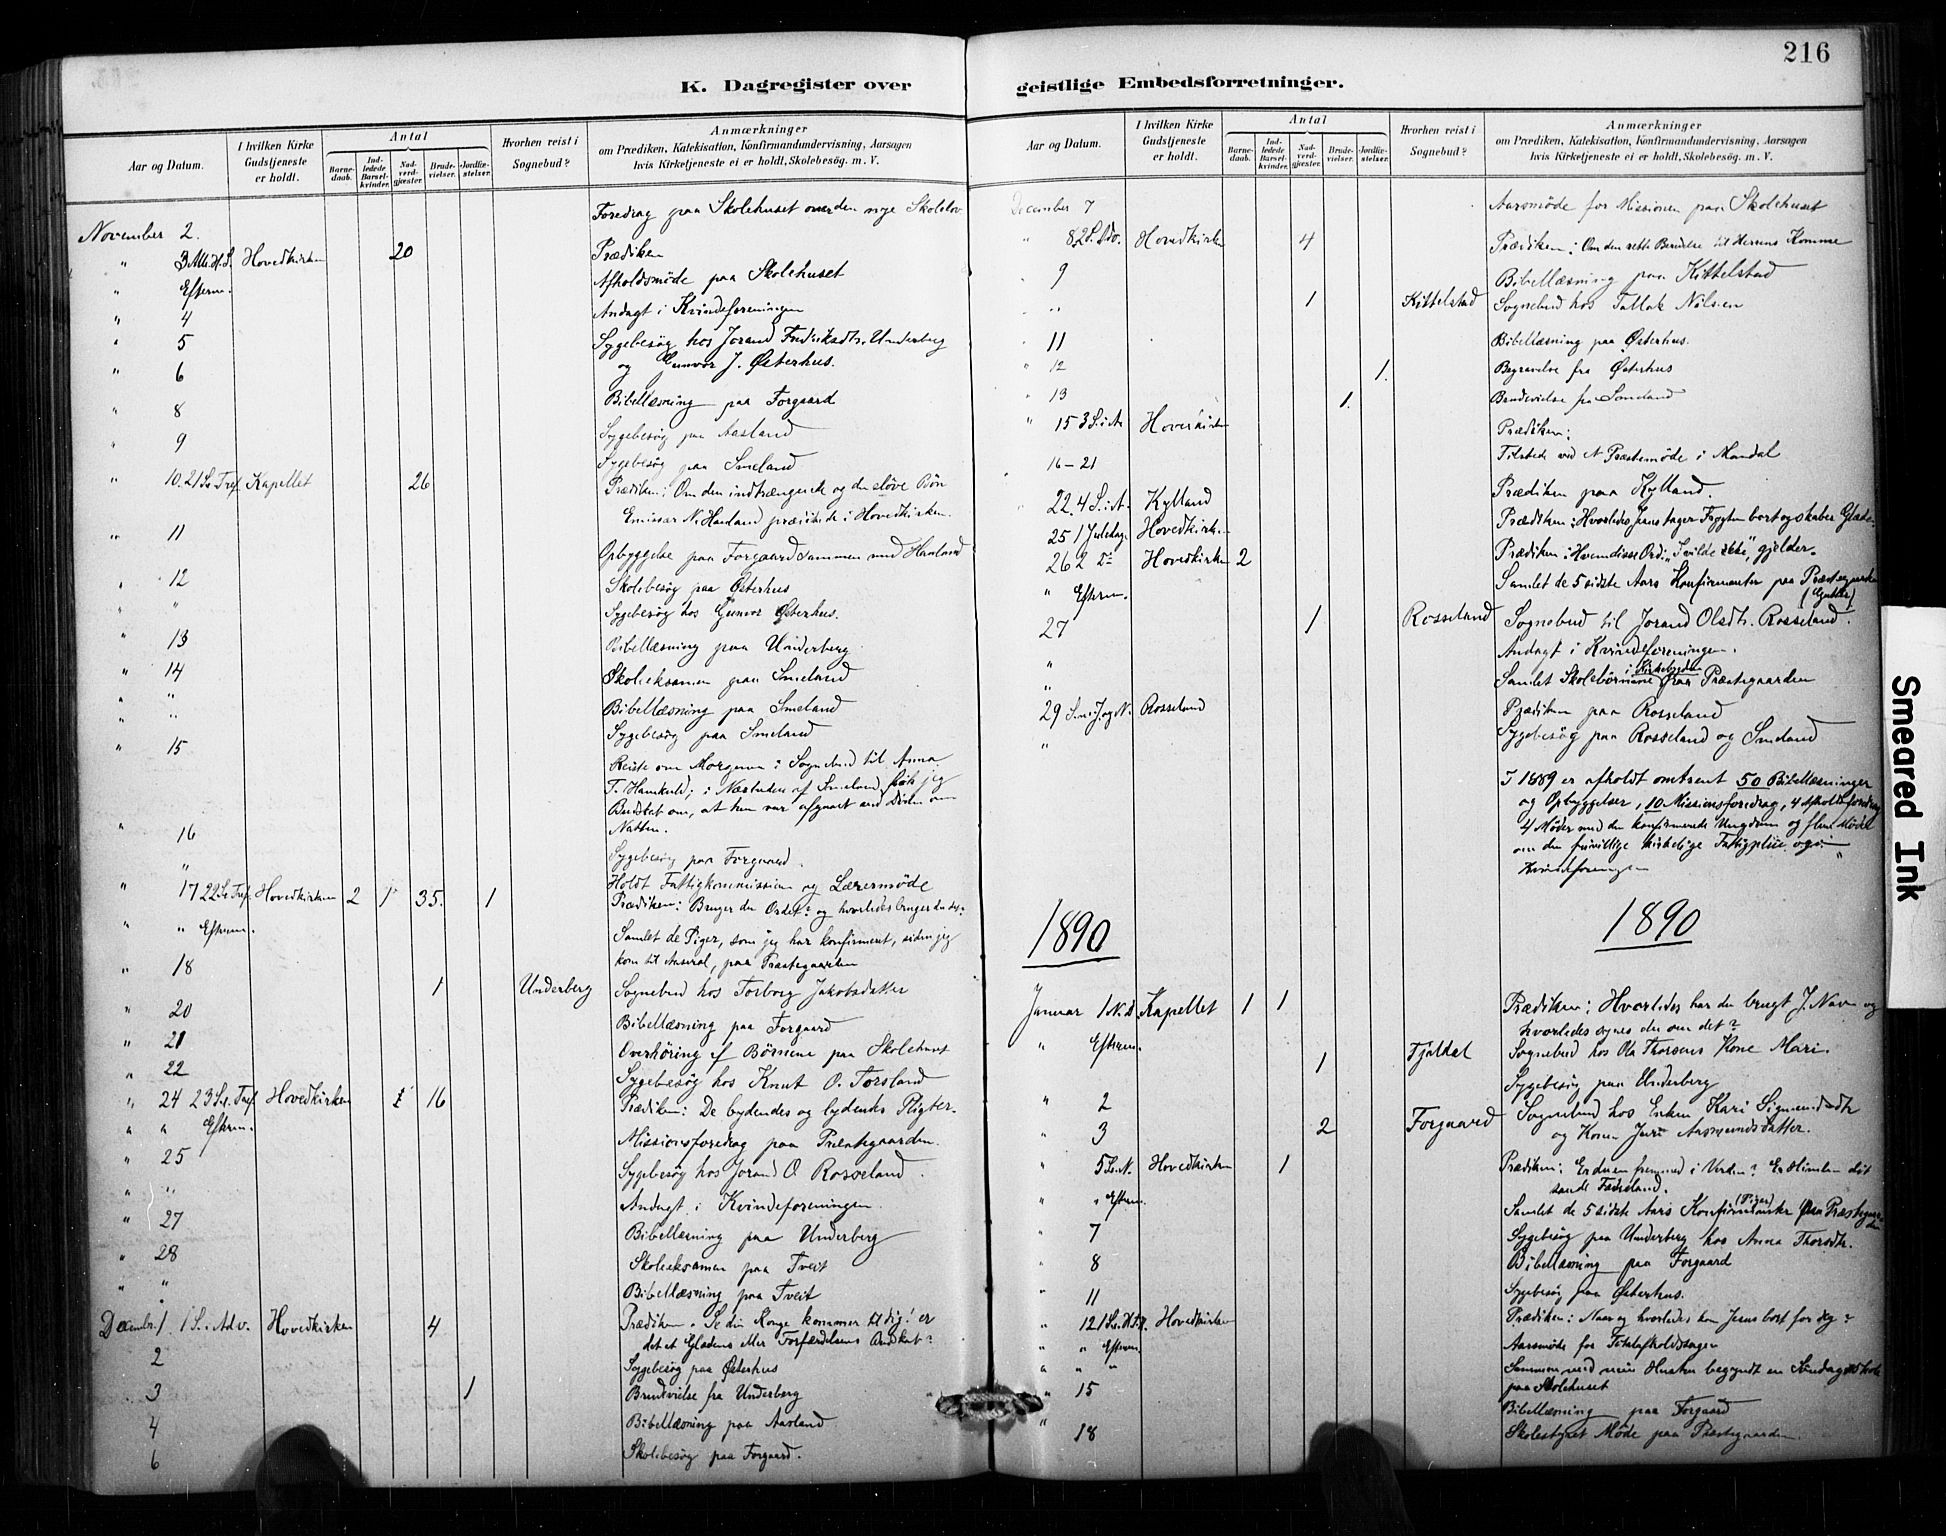 216
K. Dagregister over geistlige Embedsforretninger.
Aar og Datum.
I hvilken Kirke Gudstjeneste er holdt.
Antal
Barnedaab.
Indledede Barselkvinder.
Nadverdgjæster.
Brudevielser.
Jordfæstelser.
Hvorhen reist i Sognebud?
Anmærkninger
om Prædiken, Katekisation, Konfirmandundervisning, Aarsagen
hvis Kirketjeneste ei er holdt, Skolebesög. m. V.
November 2. Foredrag paa Skolehuset over den nye Skolelov
" 3 Alle H. S. Hovedkirken 20 Prædiken
" Efterm. Afholdsmøde paa Skolehuset
" 4 Andagt i Kvindeforeningen
" 5 Sygebesøg hos Jorand Fredriksdtr. Underberg
og Gunvor J. Østerhus.
" 6 Bibellæsning paa Forgaard
" 8 Sygebesøg paa Aasland
" 9 Sygebesøg paa Smeland
" 10. 21 S. Tref. Kapellet 26 Prædiken: Om den indtrængende og den sløve Bøn
Emissær N. Haaland prædikede i Hovedkirken.
" 11 Opbyggelse paa Forgaard sammen med Haaland
" 12 Skolebesøg paa Østerhus
" " Sygebesøg hos Gunvor Østerhus.
" 13 Bibellæsning paa Underberg
" 14 Skoleeksamen paa Smeland
" " Bibellæsning paa Smeland
" " Sygebesøg paa Smeland
" 15 Reiste om Morgenen i Sognebud til Anna
T. Hamkold; i Nærheden af Smeland fik jeg
Budskab om, at hun var afgaaet ved Døden om
Natten.
" 16 Sygebesøg paa Forgaard.
" Holdt Fattigkommission og Lærermøde
" 17 22 S. Tref. Hovedkirken 2 1 35. 1 Prædiken: Bruger du Ordet? og hvorledes bruger du det?
" " Efterm. Samlet de Piger, som jeg har konfirmeret, siden jeg
kom til Aaseral, paa Præstegaarden
" 18 1 Underberg Sognebud hos Torborg Jakobsdatter
" 20 Bibellæsning paa Forgaard
" 21 Overhøring af Børnene paa Skolehuset
" 22 Sygebesøg hos Knut O. Torsland
" 24 23 S. Tref. Hovedkirken 16 Prædiken: De bydendes og lydendes Pligter.
" " Efterm. Missionsforedrag paa Præstegaarden.
" 25 Sygebesøg hos Jorand O Rosseland.
" " Andagt i Kvindeforeningen.
" 27 Bibellæsning paa Underberg
" 28 Skoleeksamen paa Tveit
" " Bibellæsning paa Tveit
Decembr. 1 1 S. i Adv. Hovedkirken 4 Prædiken. Se din Konge kommer til dig! er
det et Glædens eller Forfærdelsens Budskab?
2 Sygebesøg paa Østerhus
3 1 Brudevielse fra Underberg
4 Bibellæsning paa Aasland
6 Skolebesøg paa Forgaard.
Aar og Datum.
I hvilken Kirke Gudstjeneste er holdt.
Antal
Barnedaab.
Indledede Barselkvinder.
Nadverdgjester.
Brudevielser.
Jordfæstelser.
Hvorhen reist i Sognebud?
Anmærkninger
om Prædiken, Katekisation, Konfirmandundervisning, Aarsagen
hvis Kirketjeneste ei er holdt, Skolebesög. m. V.
December 7 Aarsmøde for Missionen paa Skolehuset
" 8 2 S. Adv. Hovedkirken 4 Prædiken: Om den rette Beredelse til Herrens Komme
" 9 Bibellæsning paa Kittelstad
" 1 Kittelstad Sognebud hos Tallak Nilsen
" 11 Bibellæsning paa Østerhus.
" 12 1. Begravelse fra Østerhus
" 13 1. Brudevielse fra Smeland
" 15 3 S. i A. Hovedkirken Prædiken:
16-21 Tilstede ved et Præstemøde i Mandal
22. 4 S. i A. Kylland Prædiken paa Kylland.
25 1 Juledag Hovedkirken Prædiken: Hvorledes Jesus tager Frygten bort og skaber Glæde
26 2 Do Hovedkirken 2 Prædiken: Hvem disse Ord: "I vilde ikke", gjelder.
" Efterm. Samlet de 5 sidste Aars Konfirmanter paa Præstegaarden
(Gutter)
27 1 Rosseland Sognebud til Jorand Olsdtr. Rosseland.
" Andagt i Kvindeforeningen.
" Samlet Skolebørnene i Kirkebygden paa Præstegaarden
29 S. m. J. og N. Rosseland Prædiken paa Rosseland
" Sygebesøg paa Rosseland og Smeland
I 1889 er afholdt omtrent 50 Bibellæsninger
og Opbyggelser, 10 Missionsforedrag, 4 Afholdsforedrag
4 Møder med den konfirmerede Ungdom og flere Møder
om den frivillige kirkelige Fattigpleie og i
Kvindeforeningen
1890 1890
Januar 1 N. D. Kapellet 1 1 Prædiken: Hvorledes har du brugt J. Navn og
hvorledes synes du om det?
" Efterm. 1 Fjeldal Sognebud hos Ola Thorsens Kone Mari.
Sygebesøg paa Underberg
" 2 Forgaard Sognebud hos Enken Kari Sigmundsdtr
" 3 2 og Konen Juri Aasmundsdatter.
" 5 S. e. N. Hovedkirken 1 Prædiken: Er du en fremmed i Verden? Er Himlen dit
sande Fædreland.
" " Efterm. Samlet de 5 sidste Aars Konfirmanter (Piger) paa Præstegaarden
" 7 Sygebesøg paa Underberg hos Anna Thorsdtr.
" 8 Bibellæsning paa Forgaard
" 11 Sygebesøg paa Østerhus.
" 12 1 S. e. H. 3 K. Hovedkirken Prædiken: Naar og hvorledes kom Jesus bort for dig?
" " Efterm. Aarsmøde for Totalafholdssagen
" " " Sammen med min Hustru begyndt en Søndagsskole
paa Skolehuset
" 15 Bibellæsning paa Forgaard
" 18 Skolestyret Møde paa Præstegaarden.
Smeared Ink